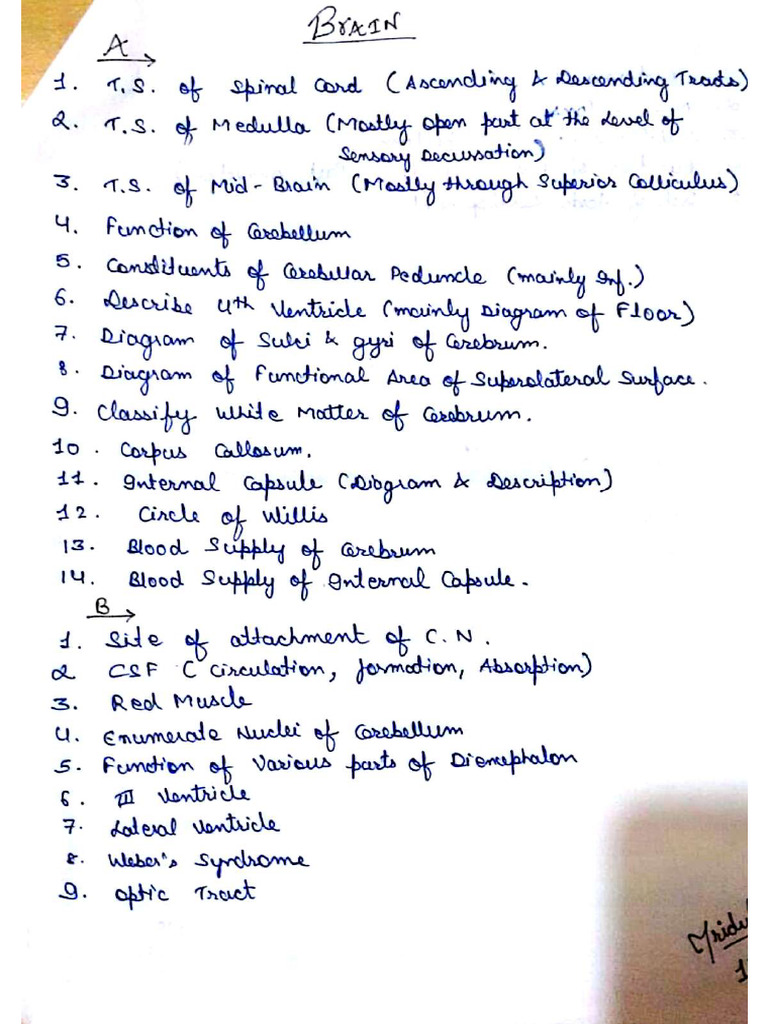 BRAIN
A
1. T.S. of Spinal Cord (Ascending & Descending Tracts)
2. T.S. of Medulla (Mostly open part at the Level of
Sensory Decussation)
3. T.S. of Mid-Brain (Mostly through Superior Colliculus)
4. Function of Cerebellum
5. Constituents of Cerebellar Peduncle (mainly Inf.)
6. Describe 4th Ventricle (mainly Diagram of Floor)
7. Diagram of Sulci & gyri of Cerebrum.
8. Diagram of Functional Area of Superolateral Surface.
9. Classify White Matter of Cerebrum.
10. Corpus Callosum.
11. Internal Capsule (Diagram & Description)
12. Circle of Willis
13. Blood Supply of Cerebrum
14. Blood Supply of Internal Capsule.
B
1. Site of attachment of C.N.
2 CSF ( Circulation, formation, Absorption)
3. Red Muscle
4. Enumerate Nuclei of Cerebellum
5. Function of Various parts of Diencephalon
6. III Ventricle
7. Lateral Ventricle
8. Weber's Syndrome
9. Optic Tract